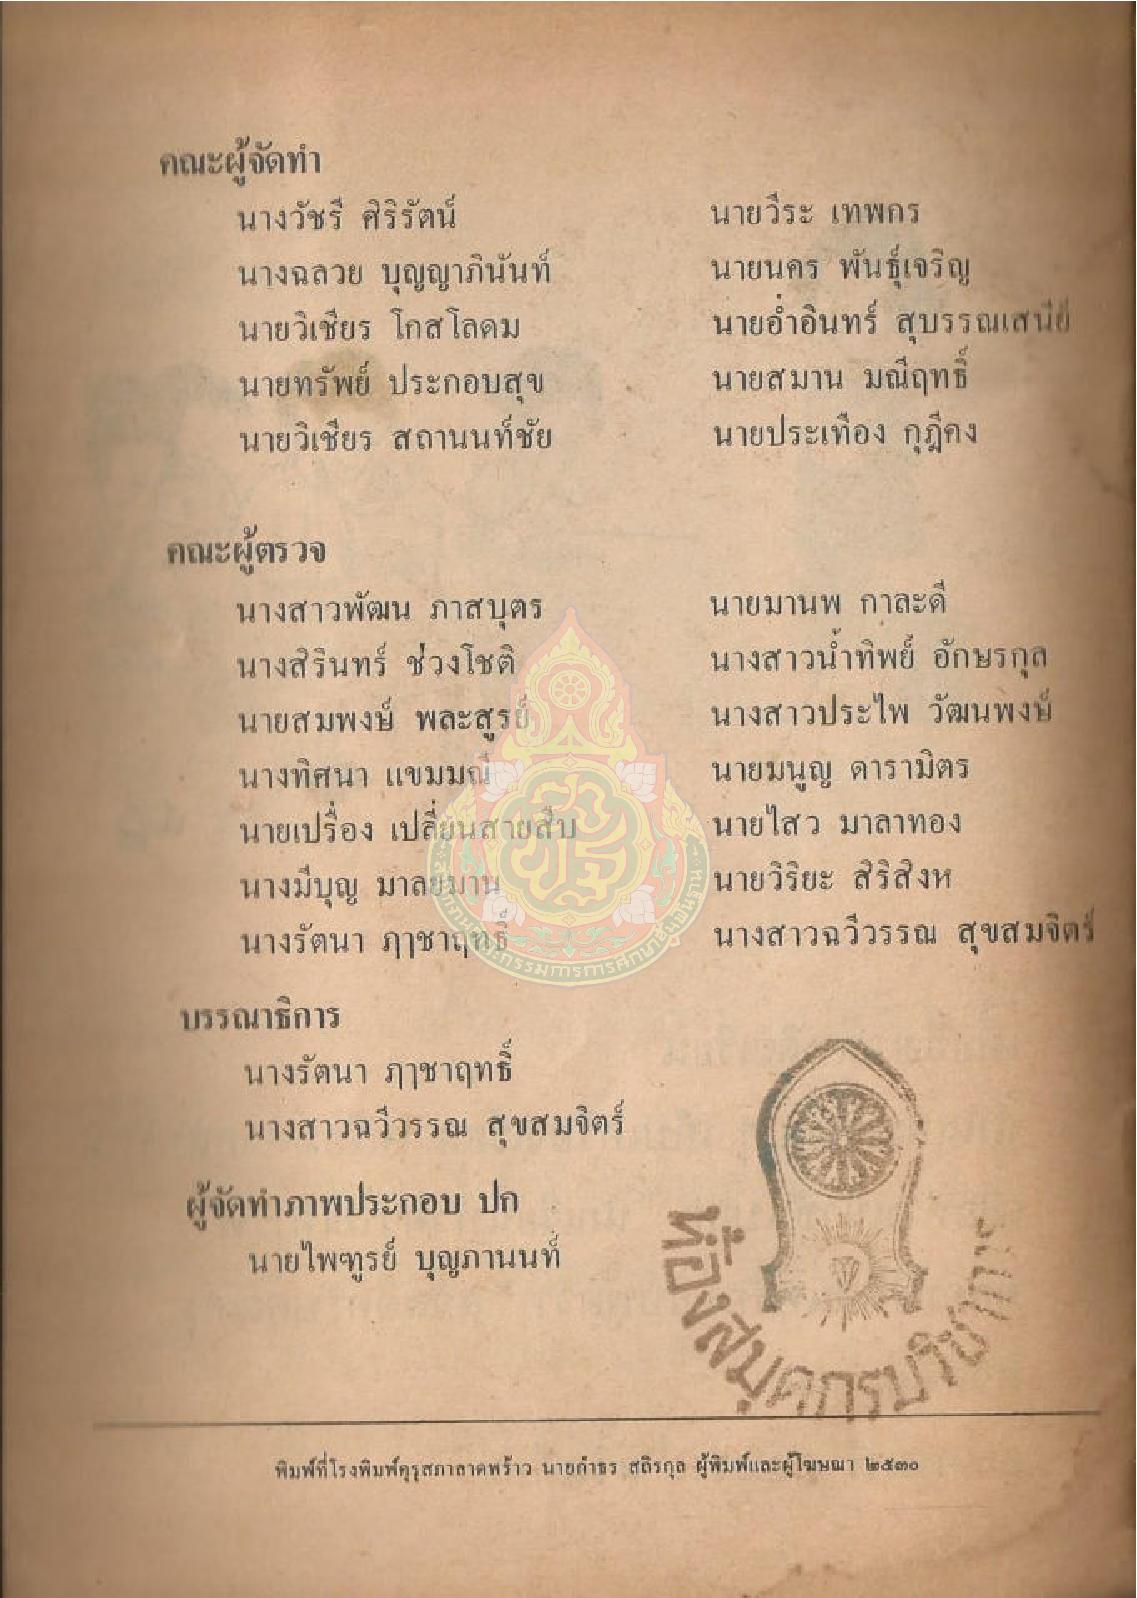 คณะผู้จัดทำ
นางวัชรี ศิริรัตน์ นายวีระ เทพกร
นางฉลวย บุญญาภินันท์ นายนคร พันธุ์เจริญ
นายวิเชียร โกสโลดม นายอ่ำอินทร์ สุบรรณเสนีย์
นายทรัพย์ ประกอบสุข นายสมาน มณีฤทธิ์
นายวิเชียร สถานนท์ชัย นายประเทือง กุฎีคง
คณะผู้ตรวจ
นางสาวพัฒน ภาสบุตร นายมานพ กาละดี
นางสิรินทร์ ช่วงโชติ นางสาวน้ำทิพย์ อักษรกุล
นายสมพงษ์ พละสูรย์ นางสาวประไพ วัฒนพงษ์
นางทิศนา แขมมณี นายมนูญ ดารามิตร
นายเปรื่อง เปลี่ยนสายสืบ นายไสว มาลาทอง
นางมีบุญ มาลยมาน นายวิริยะ สิริสิงห
นางรัตนา ฦๅชาฤทธิ์ นางสาวฉวีวรรณ สุขสมจิตร์
สำนักงานคณะกรรมการการศึกษาขั้นพื้นฐาน
บรรณาธิการ
นางรัตนา ฦๅชาฤทธิ์
นางสาวฉวีวรรณ สุขสมจิตร์
ผู้จัดทำภาพประกอบ ปก
นายไพฑูรย์ บุญภานนท์
ห้องสมุดกรมวิชาการ
พิมพ์ที่โรงพิมพ์คุรุสภาลาดพร้าว นายกำธร สถิรกุล ผู้พิมพ์และผู้โฆษณา ๒๕๓๐